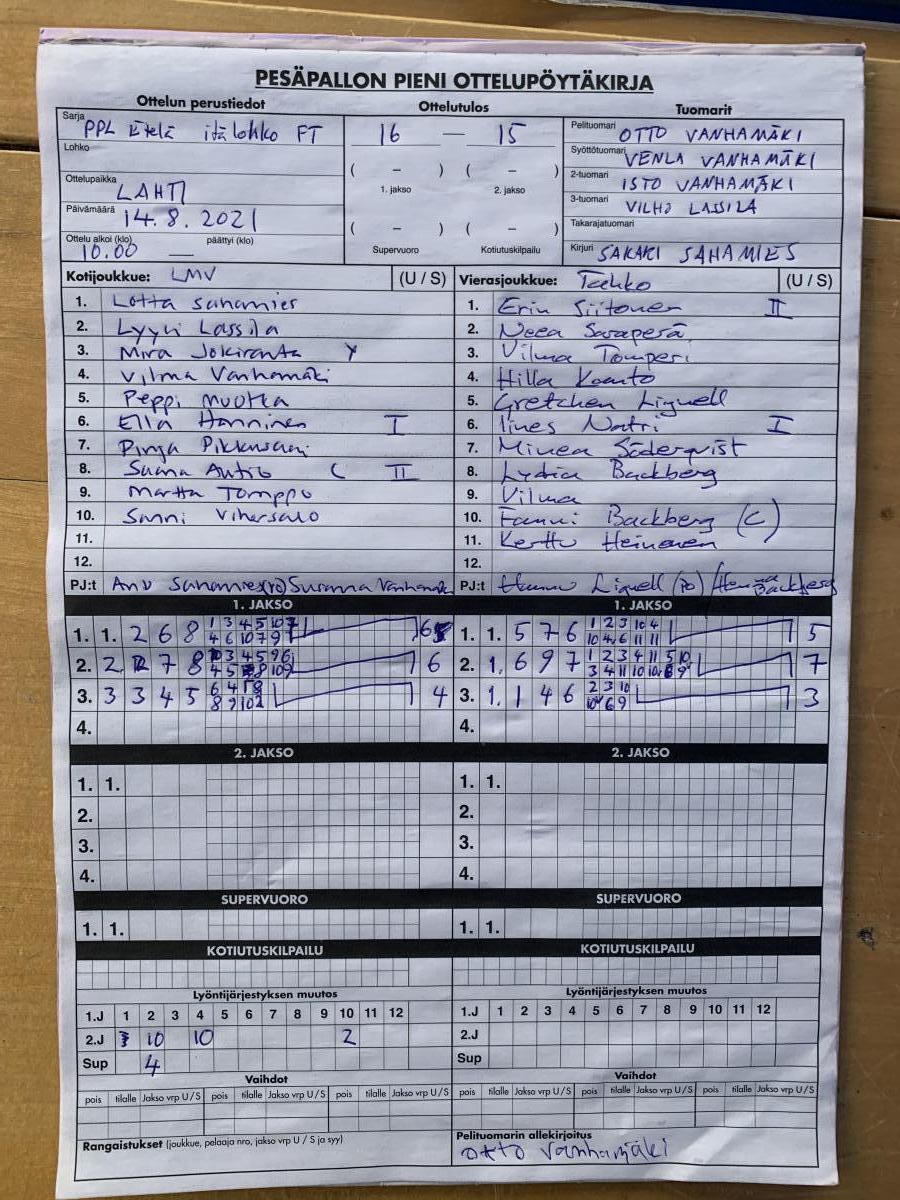 PESÄPALLON PIENI OTTELUPÖYTÄKIRJA
Ottelun perustiedot
Sarja PPL Etelä itälohko FT
Lohko
Ottelupaikka LAHTI
Päivämäärä 14.8.2021
Ottelu alkoi (klo) 10.00 päättyi (klo) —
Ottelutulos
16 — 15
( – ) ( – )
1. jakso 2. jakso
( – ) ( – )
Supervuoro Kotiutuskilpailu
Tuomarit
Pelituomari OTTO VANHAMÄKI
Syöttötuomari VENLA VANHAMÄKI
2-tuomari ISTO VANHAMÄKI
3-tuomari VILHO LASSILA
Takarajatuomari
Kirjuri SAKARI SAHAMIES
Kotijoukkue: LMV (U / S)
1. Lotta Sahamies
2. Lyyli Lassila
3. Mira Jokiranta Y
4. Vilma Vanhamäki
5. Peppi Muotka
6. Ella Hanninen I
7. Pinja
8. Sanna Anttio C II
9. Martta Tomppo
10. Sanni Vihersalo
11.
12.
PJ:t Anu Sahamies Susanna Vanhamäki
Vierasjoukkue: Tahko (U / S)
1. Erin Siitonen II
2. Neea Saraperä
3. Vilma Tomperi
4. Hilla Kaanto
5. Gretchen Lignell
6. Iines Natri I
7. Minea Söderqvist
8. Lydia Backberg
9. Vilma
10. Fanni Backberg (C)
11. Kerttu Heinonen
12.
PJ:t Hannu Lignell (PO) / Backberg
1. JAKSO
1. 1. 2 6 8
2. 2 7 8 6
3. 3 3 4 5 4
4.
1. JAKSO
1. 1. 5 7 6 1 2 3 10 4 10 4 6 11 11 5
2. 1. 6 9 7 7
3. 1. 1 4 6 2 3 10 3
4.
2. JAKSO
1. 1.
2.
3.
4.
2. JAKSO
1. 1.
2.
3.
4.
SUPERVUORO
1. 1.
SUPERVUORO
1. 1.
KOTIUTUSKILPAILU
KOTIUTUSKILPAILU
Lyöntijärjestyksen muutos
1.J 1 2 3 4 5 6 7 8 9 10 11 12
2.J 10 10 2
Sup 4
Lyöntijärjestyksen muutos
1.J 1 2 3 4 5 6 7 8 9 10 11 12
2.J
Sup
Vaihdot
pois tilalle Jakso vrp U / S pois tilalle Jakso vrp U / S pois tilalle Jakso vrp U / S
Vaihdot
pois tilalle Jakso vrp U / S pois tilalle Jakso vrp U / S pois tilalle Jakso vrp U / S
Rangaistukset (joukkue, pelaaja nro, jakso vrp U / S ja syy)
Pelituomarin allekirjoitus
Otto Vanhamäki